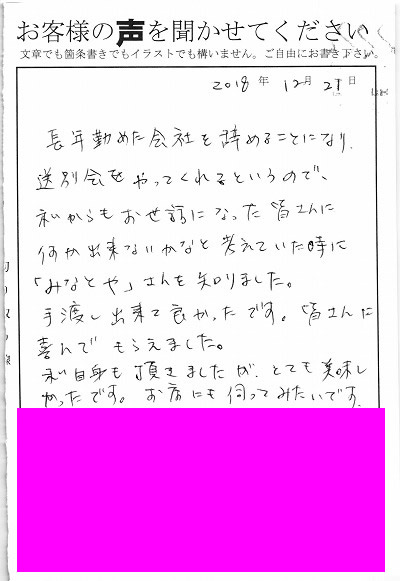 お客様の声を聞かせてください
文章でも箇条書きでもイラストでも構いません。ご自由にお書き下さい。
2018年 12月 21日
長年勤めた会社を辞めることになり、
送別会をやってくれるというので、
私からもお世話になった皆さんに
何か出来ないかなと考えていた時に
「みなとや」さんを知りました。
手渡し出来て良かったです。皆さんに
喜んでもらえました。
私自身も頂きましたが、とても美味し
かったです。お店にも伺ってみたいです。